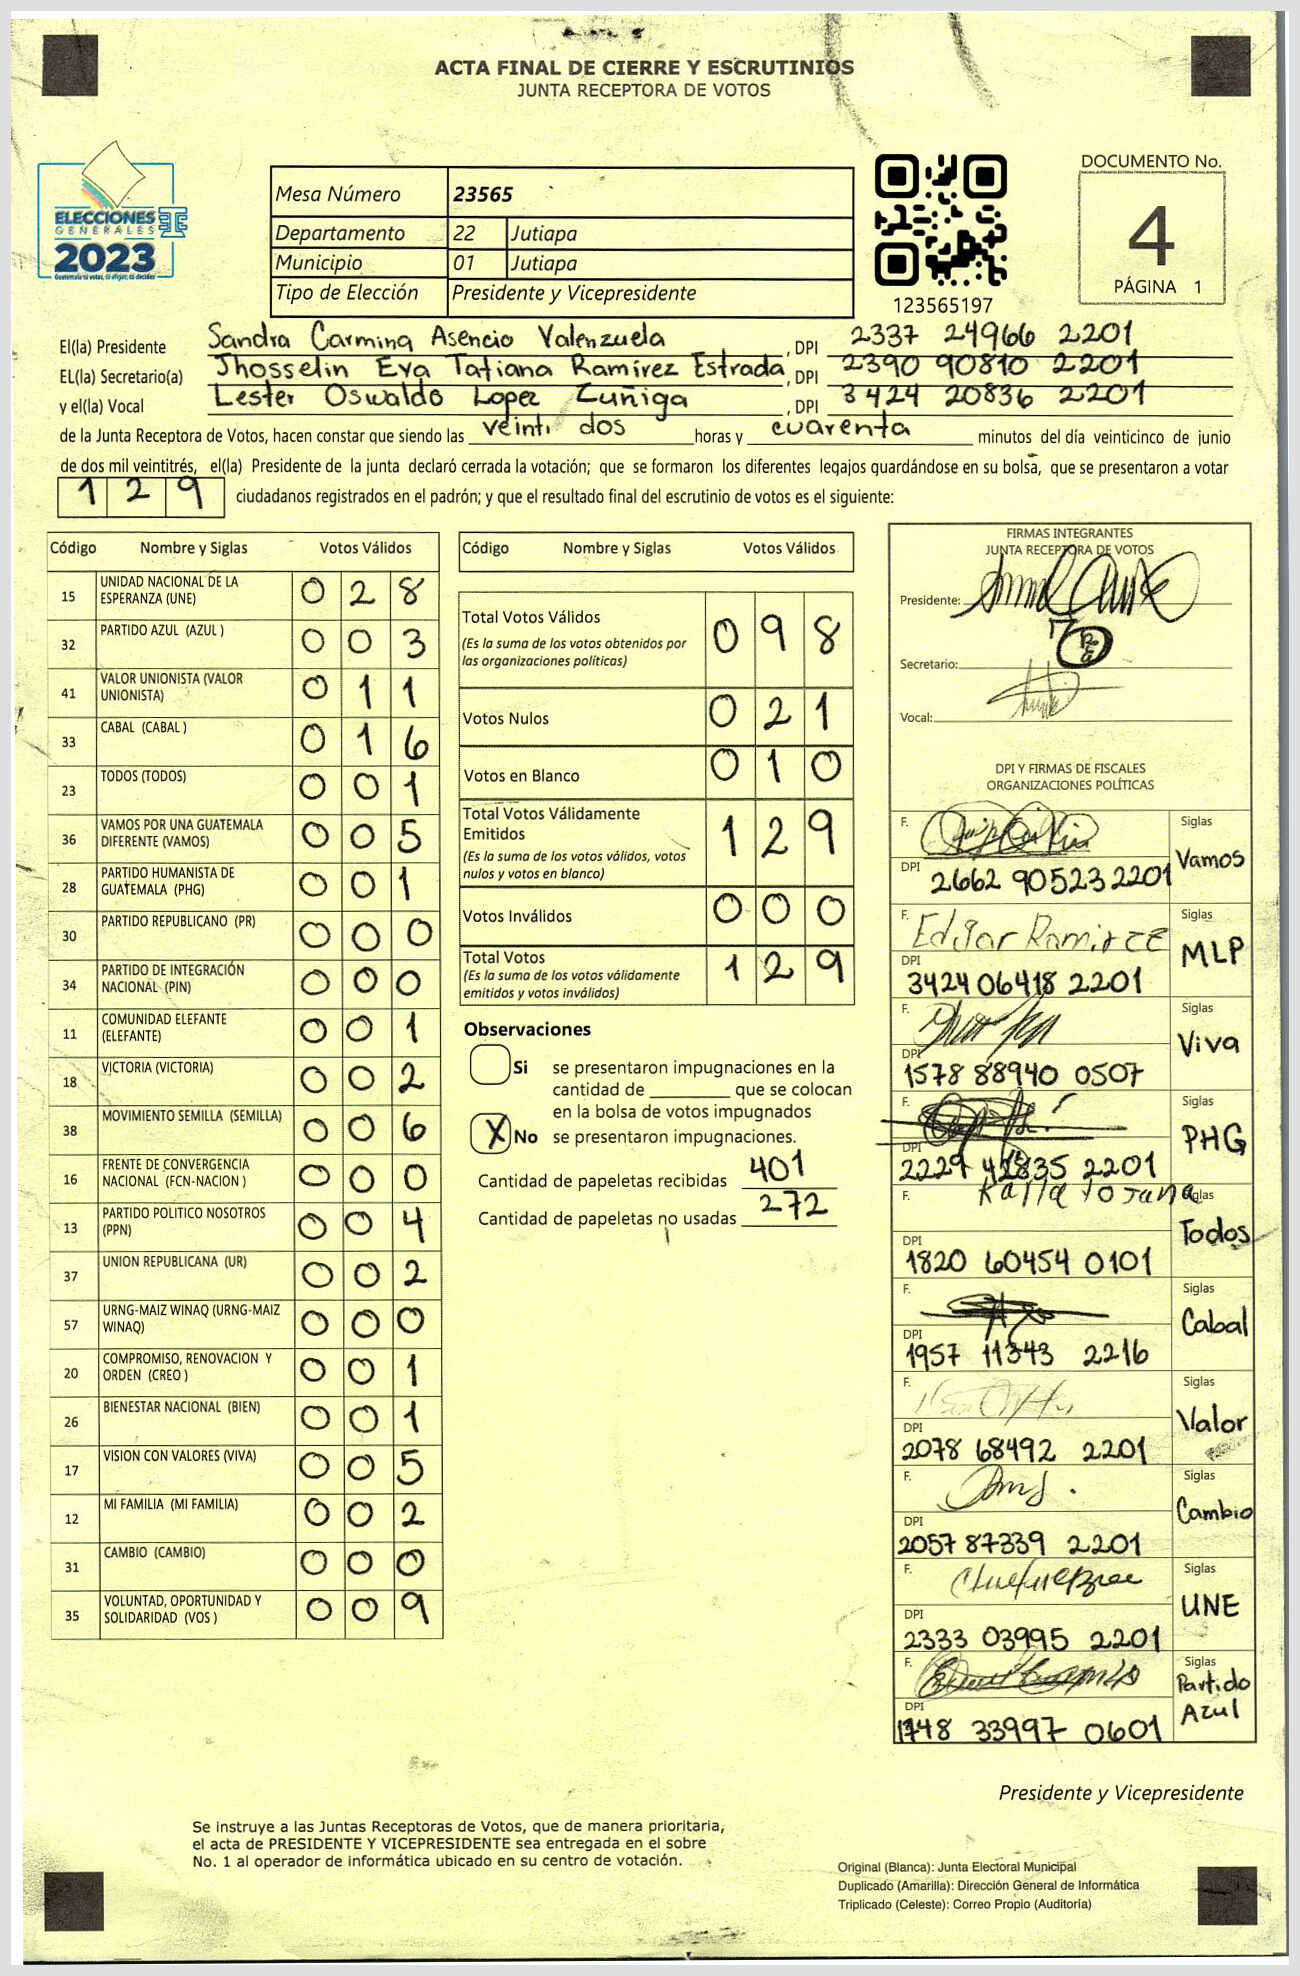 ACTA FINAL DE CIERRE Y ESCRUTINIOS
JUNTA RECEPTORA DE VOTOS
ELECCIONES
GENERALES
2023
Guatemala tú votas, tú eliges, tú decides
Mesa Número 23565
Departamento 22 Jutiapa
Municipio 01 Jutiapa
Tipo de Elección Presidente y Vicepresidente
123565197
DOCUMENTO No.
4
PÁGINA 1
El(la) Presidente Sandra Carmina Asencio Valenzuela, DPI 2337 24966 2201
EL(la) Secretario(a) Jhosselin Eva Tatiana Ramírez Estrada, DPI 2390 90810 2201
y el(la) Vocal Lester Oswaldo Lopez Zuñiga, DPI 3424 20836 2201
de la Junta Receptora de Votos, hacen constar que siendo las veinti dos horas y cuarenta minutos del día veinticinco de junio
de dos mil veintitrés, el(la) Presidente de la junta declaró cerrada la votación; que se formaron los diferentes legajos guardándose en su bolsa, que se presentaron a votar
129 ciudadanos registrados en el padrón; y que el resultado final del escrutinio de votos es el siguiente:
Código Nombre y Siglas Votos Válidos
15 UNIDAD NACIONAL DE LA ESPERANZA (UNE) 0 2 8
32 PARTIDO AZUL (AZUL ) 0 0 3
41 VALOR UNIONISTA (VALOR UNIONISTA) 0 1 1
33 CABAL (CABAL ) 0 1 6
23 TODOS (TODOS) 0 0 1
36 VAMOS POR UNA GUATEMALA DIFERENTE (VAMOS) 0 0 5
28 PARTIDO HUMANISTA DE GUATEMALA (PHG) 0 0 1
30 PARTIDO REPUBLICANO (PR) 0 0 0
34 PARTIDO DE INTEGRACIÓN NACIONAL (PIN) 0 0 0
11 COMUNIDAD ELEFANTE (ELEFANTE) 0 0 1
18 VICTORIA (VICTORIA) 0 0 2
38 MOVIMIENTO SEMILLA (SEMILLA) 0 0 6
16 FRENTE DE CONVERGENCIA NACIONAL (FCN-NACION ) 0 0 0
13 PARTIDO POLITICO NOSOTROS (PPN) 0 0 4
37 UNION REPUBLICANA (UR) 0 0 2
57 URNG-MAIZ WINAQ (URNG-MAIZ WINAQ) 0 0 0
20 COMPROMISO, RENOVACION Y ORDEN (CREO ) 0 0 1
26 BIENESTAR NACIONAL (BIEN) 0 0 1
17 VISION CON VALORES (VIVA) 0 0 5
12 MI FAMILIA (MI FAMILIA) 0 0 2
31 CAMBIO (CAMBIO) 0 0 0
35 VOLUNTAD, OPORTUNIDAD Y SOLIDARIDAD (VOS ) 0 0 9
Código Nombre y Siglas Votos Válidos
Total Votos Válidos 0 9 8
(Es la suma de los votos obtenidos por
las organizaciones políticas)
Votos Nulos 0 2 1
Votos en Blanco 0 1 0
Total Votos Válidamente
Emitidos 1 2 9
(Es la suma de los votos válidos, votos
nulos y votos en blanco)
Votos Inválidos 0 0 0
Total Votos 1 2 9
(Es la suma de los votos válidamente
emitidos y votos inválidos)
Observaciones
Si se presentaron impugnaciones en la
cantidad de ________ que se colocan
en la bolsa de votos impugnados
X No se presentaron impugnaciones.
Cantidad de papeletas recibidas 401
Cantidad de papeletas no usadas 272
FIRMAS INTEGRANTES
JUNTA RECEPTORA DE VOTOS
Presidente:
Secretario:
Vocal:
DPI Y FIRMAS DE FISCALES
ORGANIZACIONES POLÍTICAS
F. Siglas Vamos
DPI 2662 90523 2201
F. Edgar Ramirez Siglas MLP
DPI 3424 06418 2201
F. Siglas Viva
DPI 1578 88940 0507
F. Siglas PHG
DPI 2229 42835 2201
F. Karla Siglas Todos
DPI 1820 60454 0101
F. Siglas Cabal
DPI 1957 11343 2216
F. Siglas Valor
DPI 2078 68492 2201
F. Siglas Cambio
DPI 2057 87339 2201
F. Siglas UNE
DPI 2333 03995 2201
F. Siglas Partido Azul
DPI 1748 33997 0601
Presidente y Vicepresidente
Se instruye a las Juntas Receptoras de Votos, que de manera prioritaria,
el acta de PRESIDENTE Y VICEPRESIDENTE sea entregada en el sobre
No. 1 al operador de informática ubicado en su centro de votación.
Original (Blanca): Junta Electoral Municipal
Duplicado (Amarilla): Dirección General de Informática
Triplicado (Celeste): Correo Propio (Auditoría)